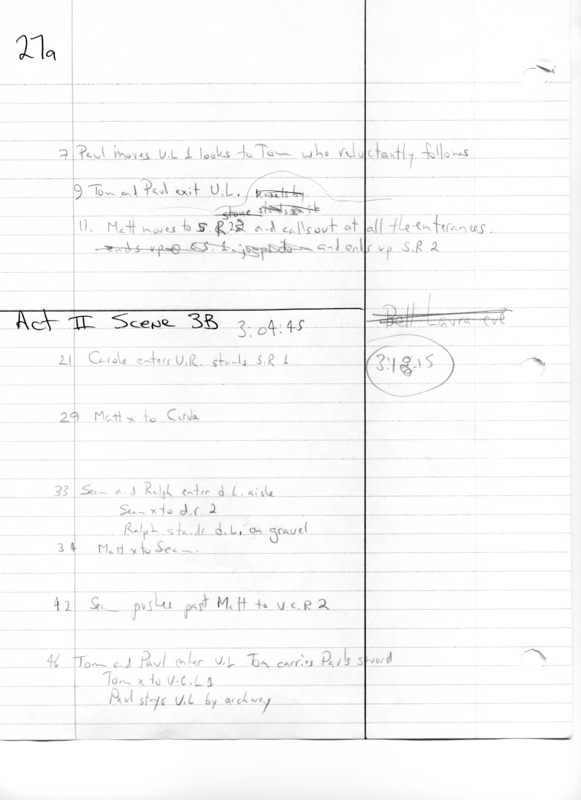 27a
7 Paul moves U.L 1 looks to Tom who reluctantly follows
9 Tom and Paul exit U.L. kneels by
stone
11. Matt moves to S.R 2 and calls out at all the enterances.
ends up S.1. jumps down and ends up S.R 2
Act II Scene 3B 3:04:45
Laura eve
21 Carole enters U.R. stands S.R 1
3:18:15
29 Matt x to Circle
33 Sean and Ralph enter d.L. aisle
Sean x to d.r. 2
Ralph stands d.L. on gravel
34 Matt x to Sean.
42 Sean pushes past Matt to U.C.R 2
46 Tom and Paul enter U.L Tom carries Paul's sword
Tom x to U.C.L 1
Paul stays U.L by archway